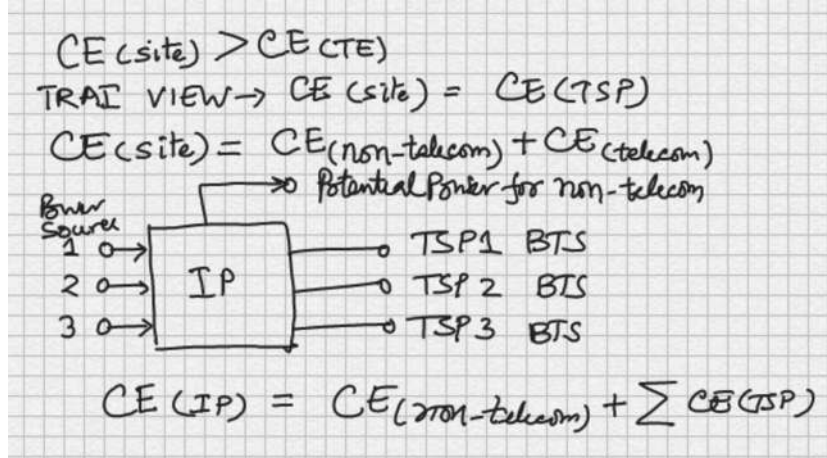 CE (site) > CE (TE)
TRAI VIEW→ CE (site) = CE (TSP)
CE (site) = CE (non-telecom) + CE (telecom)
Potential Power for non-telecom
Power
Source
1
2
3
IP
TSP1 BTS
TSP 2 BTS
TSP 3 BTS
CE (IP) = CE (non-telecom) + ∑ CE (TSP)